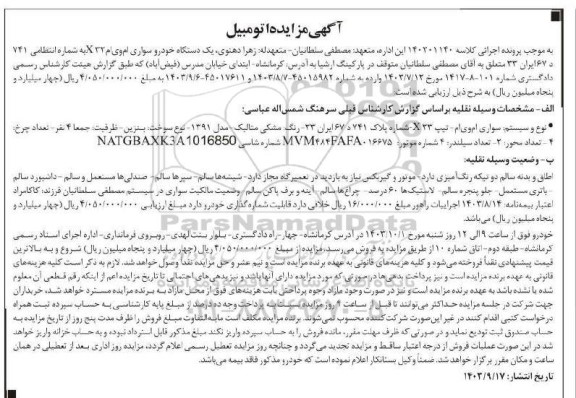 آگهی مزایده اتومبیل
به موجب پرونده اجرائی کلاسه ۱۴۰۲۰۱۱۴۰ این اداره، متعهد: مصطفی سلطانیان- متعهدله: زهرا دهنوی، یک دستگاه خودرو سواری ام‌وی‌ام X۳۳ به شماره انتظامی ۷۴۱
د ۶۷ ایران ۳۳ متعلق به آقای مصطفی سلطانیان متوقف در پارکینگ ارشیا به آدرس: کرمانشاه- ابتدای خیابان مدرس (فیض‌آباد) که طبق گزارش هیئت کارشناس رسمی
دادگستری شماره ۱۰۱-۸-۱۴۱۷ مورخ ۱۴۰۳/۷/۱۲ وارده به شماره ۴۵۰۱۵۹۸۲-۱۴۰۳/۸/۷ و ۴۵۰۱۷۶۱۱-۱۴۰۳/۹/۶ به مبلغ ۴/۰۵۰/۰۰۰/۰۰۰ ریال (چهار میلیارد و
پنجاه میلیون ریال) به شرح ذیل ارزیابی شده است.
الف- مشخصات وسیله نقلیه براساس گزارش کارشناس قبلی سرهنگ شمس‌اله عباسی:
• نوع و سیستم: سواری ام‌وی‌ام- تیپ X۳۳- شماره پلاک ۷۴۱ د ۶۷ ایران ۳۳- رنگ مشکی متالیک- مدل ۱۳۹۱- نوع سوخت: بنزین- ظرفیت: جمعا ۴ نفر- تعداد چرخ:
۴- تعداد محور: ۲- تعداد سیلندر: ۴ شماره موتور: MVM۴۸۴FAFA۰۱۶۶۷۵ شماره شاسی NATGBAXK3A1016850
ب- وضعیت وسیله نقلیه:
اطاق و بدنه سالم دو تیکه رنگ‌آمیزی دارد- موتور و گیربکس نیاز به بازدید در تعمیرگاه مجاز دارد- شیشه‌ها سالم- سپرها سالم- صندلی‌ها مستعمل و سالم- داشبورد سالم
- باتری مستعمل- جلو پنجره سالم- لاستیک‌ها ۶۰ درصد- چراغ‌ها سالم- آینه و برف پاکن سالم- وضعیت مالکیت سواری در سیستم مصطفی سلطانیان فرزند: کاکامراد
اعتبار بیمه‌نامه: ۱۴۰۳/۸/۱۴ اجرائیات راهور مبلغ ۱۶/۰۰۰/۰۰۰ ریال خلافی دارد قابلیت شماره‌گذاری خودرو دارد مبلغ ارزیابی ۴/۰۵۰/۰۰۰/۰۰۰ ریال (چهار میلیارد و
پنجاه میلیون ریال) می‌باشد.
خودرو فوق از ساعت ۹ الی ۱۲ روز شنبه مورخ ۱۴۰۳/۱۰/۱ در آدرس کرمانشاه- چهارراه دادگستری- بلوار بنت‌الهدی- روبروی فرمانداری- اداره اجرای اسناد رسمی
کرمانشاه- طبقه دوم- اتاق شماره ۱۰ از طریق مزایده به فروش می‌رسد. مزایده از مبلغ ۴/۰۵۰/۰۰۰/۰۰۰ ریال (چهار میلیارد و پنجاه میلیون ریال) شروع و به بالاترین
قیمت پیشنهادی نقداً فروخته می‌شود و کلیه هزینه‌های قانونی به عهده برنده مزایده است و نیم عشر و حق مزایده نقداً وصول خواهد شد. لازم به ذکر است کلیه هزینه‌های
قانونی به عهده برنده مزایده است و نیز پرداخت بدهی‌های
شده یا نشده باشد به عهده برنده مزایده است و نیز در صورت وجود مازاد وجوه پرداختی بابت هزینه‌های فوق از محل مازاد به برنده مزایده مسترد خواهد شد. خریداران
جهت شرکت در جلسه مزایده
درخواست کتبی اقدام کنند در غیر این صورت شرکت کننده محسوب نمی‌شوند. برنده مزایده مکلف است مابه‌التفاوت مبلغ فروش را ظرف مدت پنج روز از تاریخ مزایده به
حساب صندوق ثبت تودیع نماید و در صورتی که ظرف مهلت مقرر، مانده فروش را به حساب سپرده واریز نکند مبلغ مذکور قابل استرداد نبوده و به حساب خزانه واریز خواهد
شد در این صورت عملیات فروش از درجه اعتبار ساقط و مزایده تجدید می‌گردد و چنانچه روز مزایده تعطیل رسمی اعلام گردد، مزایده روز اداری بعد از تعطیلی در همان
ساعت و مکان مقرر برگزار خواهد شد. ضمناً وکیل بستانکار اعلام نموده است که خودرو مذکور فاقد بیمه می‌باشد.
تاریخ انتشار: ۱۴۰۳/۹/۱۷